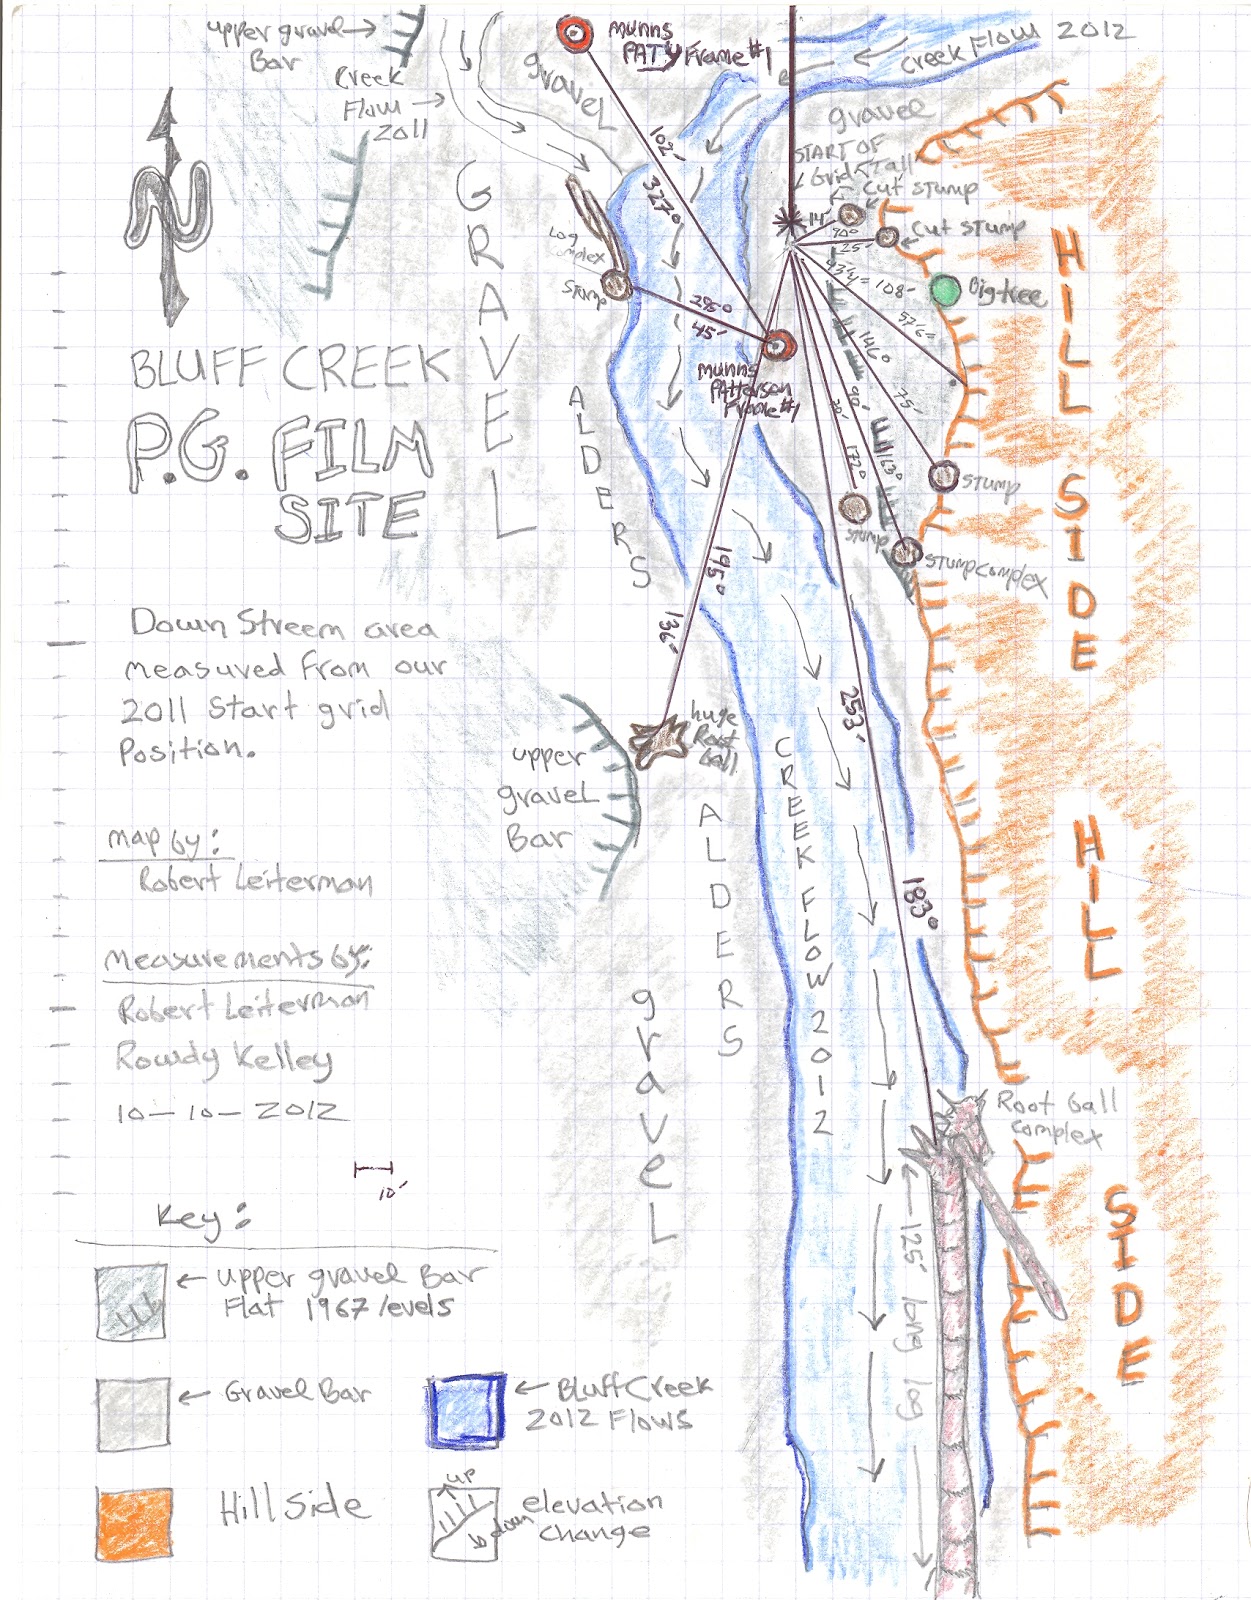 upper gravel
Bar
Creek
Flow
2011
GRAVEL
gravel
munns
PATTY Frame #1
102'
327°
creek Flow 2012
gravel
START OF
Grid
Cut stump
14'
90°
25'
Cut stump
43¼= 108'
Big tree
57'6"
146°
75'
90'
163°
70'
172°
Stump
Stump
Stump complex
Log
complex
Stump
286°
45'
munns
PAtterson
Frame #1
195°
136'
253'
183°
huge
Root
ball
upper
gravel
Bar
ALDERS
ALDERS
gravel
CREEK FLOW 2012
HILL
SIDE
HILL
SIDE
Root ball
complex
125' long log
BLUFF CREEK
P.G. FILM
SITE
Down Streem area
measured from our
2011 Start grid
Position.
map by:
Robert Leiterman
measurements by:
Robert Leiterman
Rowdy Kelley
10-10-2012
10'
Key:
upper gravel Bar
Flat 1967 levels
Gravel Bar
Hill Side
Bluff Creek
2012 Flows
up
down
elevation
change